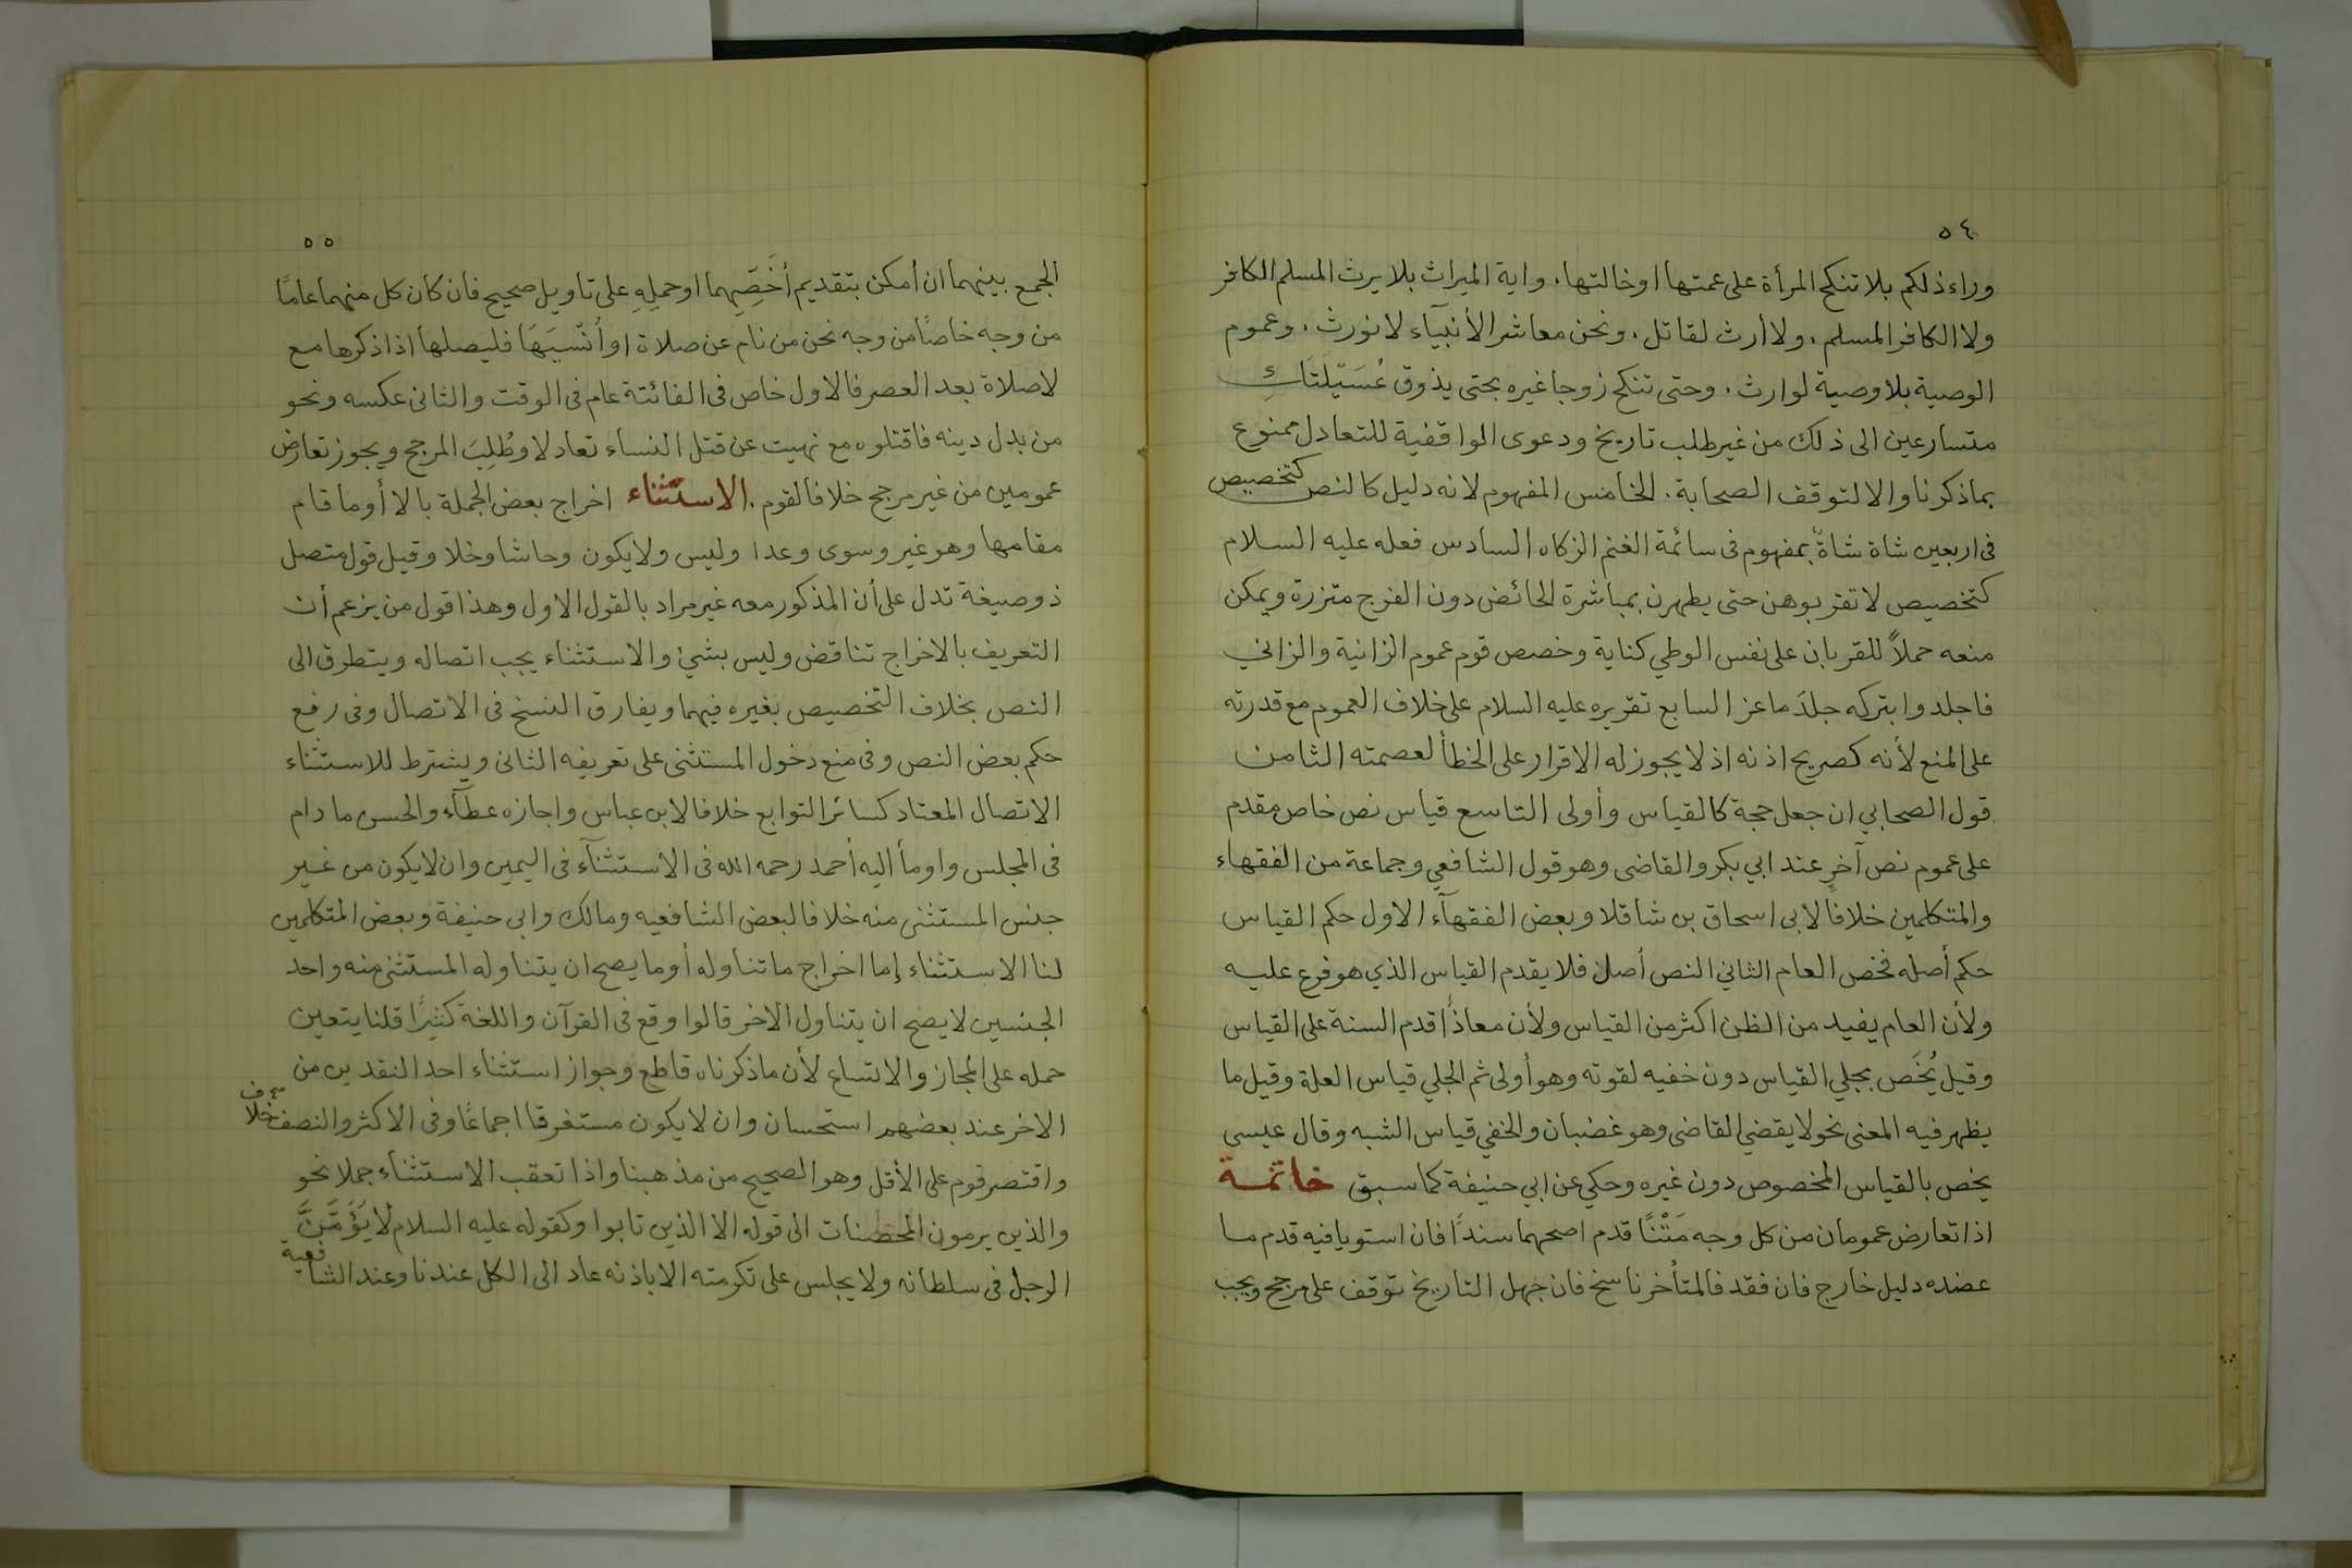 ٥٤
وراء ذلكم بلا تنكح المرأة على عمتها اوخالتها. واية الميراث بلا يرث المسلم الكافر
ولا الكافر المسلم. ولا أرث لقاتل. ونحن معاشر الأنبيآء لا نورث. وعموم
الوصية بلا وصية لوارث. وحتى تنكح زوجا غيره بحتى يذوق عُسَيْلَتَكِ
متسارعين الى ذلك من غير طلب تاريخ ودعوى الواقفية للتعادل ممنوع
بماذكرنا والا لتوقف الصحابة. الخامس المفهوم لانه دليل كالنص كتخصيص
فى اربعين شاة شاةٌ بمفهوم فى سائمة الغنم الزكاه السادس فعله عليه السلام
كتخصيص لا تقربوهن حتى يطهرن بمباشرة الحائض دون الفرج متزرة ويمكن
منعه حملاً للقربان على نفس الوطي كناية وخصص قوم عموم الزانية والزاني
فاجلدوا بتركه جلدَ ماعز السابع تقريره عليه السلام على خلاف العموم مع قدرته
على المنع لأنه كصريح اذنه اذ لا يجوز له الاقرار على الخطأ لعصمته الثامن
قول الصحابي ان جعل حجة كالقياس وأولى التاسع قياس نص خاص مقدم
على عموم نص آخر عند ابي بكر والقاضى وهو قول الشافعي وجماعة من الفقهاء
والمتكلمين خلافا لابى اسحاق بن شاقلا وبعض الفقهآء الاول حكم القياس
حكم أصله فخص العام الثاني النص أصل فلا يقدم القياس الذي هو فرع عليه
ولأن العام يفيد من الظن اكثر من القياس ولأن معاذاً قدم السنة على القياس
وقيل يُخَص بجلي القياس دون خفيه لقوته وهو أولى ثم الجلي قياس العلة وقيل ما
يظهر فيه المعنى نحو لا يقضي القاضى وهو غضبان والخفي قياس الشبه وقال عيسي
يخص بالقياس المخصوص دون غيره وحكي عن ابي حنيفة كما سبق خاتمة
اذا تعارض عمومان من كل وجه مَتْنًا قدم اصحهما سنداً فان استويا فيه قدم ما
عضده دليل خارج فان فقد فالمتأخر ناسخ فان جهل التاريخ توقف على مرجح ويجب
٥٥
الجمع بينهما ان أمكن بتقديم أخَصِّهِما اوحملِهِ على تاويل صحيح فان كان كل منهما عامًا
من وجه خاصًا من وجه نحن من نام عن صلاة او اُنْسِيَهَا فليصلها اذا ذكرها مع
لاصلاة بعد العصر فالاول خاص فى الفائتة عام فى الوقت والثانى عكسه ونحو
من بدل دينه فاقتلوه مع نهيت عن قتل النساء تعادلا وطُلِبَ المرجح ويجوز تعارض
عمومين من غير مرجح خلافا لقوم. الاستثناء اخراج بعض الجملة بالا أوما قام
مقامها وهو غير وسوى وعدا وليس ولا يكون وحاشا وخلا وقيل قول متصل
ذوصيغة تدل على أن المذكور معه غير مراد بالقول الاول وهذا قول من يزعم أن
التعريف بالاخراج تناقض وليس بشئ والاستثناء يجب اتصاله ويتطرق الى
النص بخلاف التخصيص بغيره فيهما ويفارق النسخ فى الاتصال وفى رفع
حكم بعض النص وفى منع دخول المستثنى على تعريفه الثانى ويشترط للاستثناء
الاتصال المعتاد كسائر التوابع خلافا لابن عباس واجازه عطآء والحسن ما دام
فى المجلس واومأ اليه أحمد رحمه الله فى الاستثنآء فى اليمين وان لايكون من غير
جنس المستثنى منه خلافا لبعض الشافعيه ومالك وابى حنيفة وبعض المتكلمين
لنا الاستثناء إما اخراج ما تناوله أوما يصح ان يتناوله المستثنى منه واحد
الجنسين لا يصح ان يتناول الأخر قالوا وقع فى القرآن واللغة كثيرًا قلنا يتعين
حمله على المجاز والاتساع لأن ماذكرناه قاطع وجواز استثناء احد النقدين من
الاخر عند بعضهم استحسان وان لايكون مستغرقا اجماعًا وفى الاكثر والنصف خلاف
واقتصر قوم على الأقل وهو الصحيح من مذهبنا واذا تعقب الاستثناء جملا نحو
والذين يرمون المحصنات الى قوله الا الذين تابوا وكقوله عليه السلام لا يَؤُمَّنَّ
الرجل فى سلطانه ولا يجلس على تكرمته الا باذنه عاد الى الكل عندنا وعند الشافعية